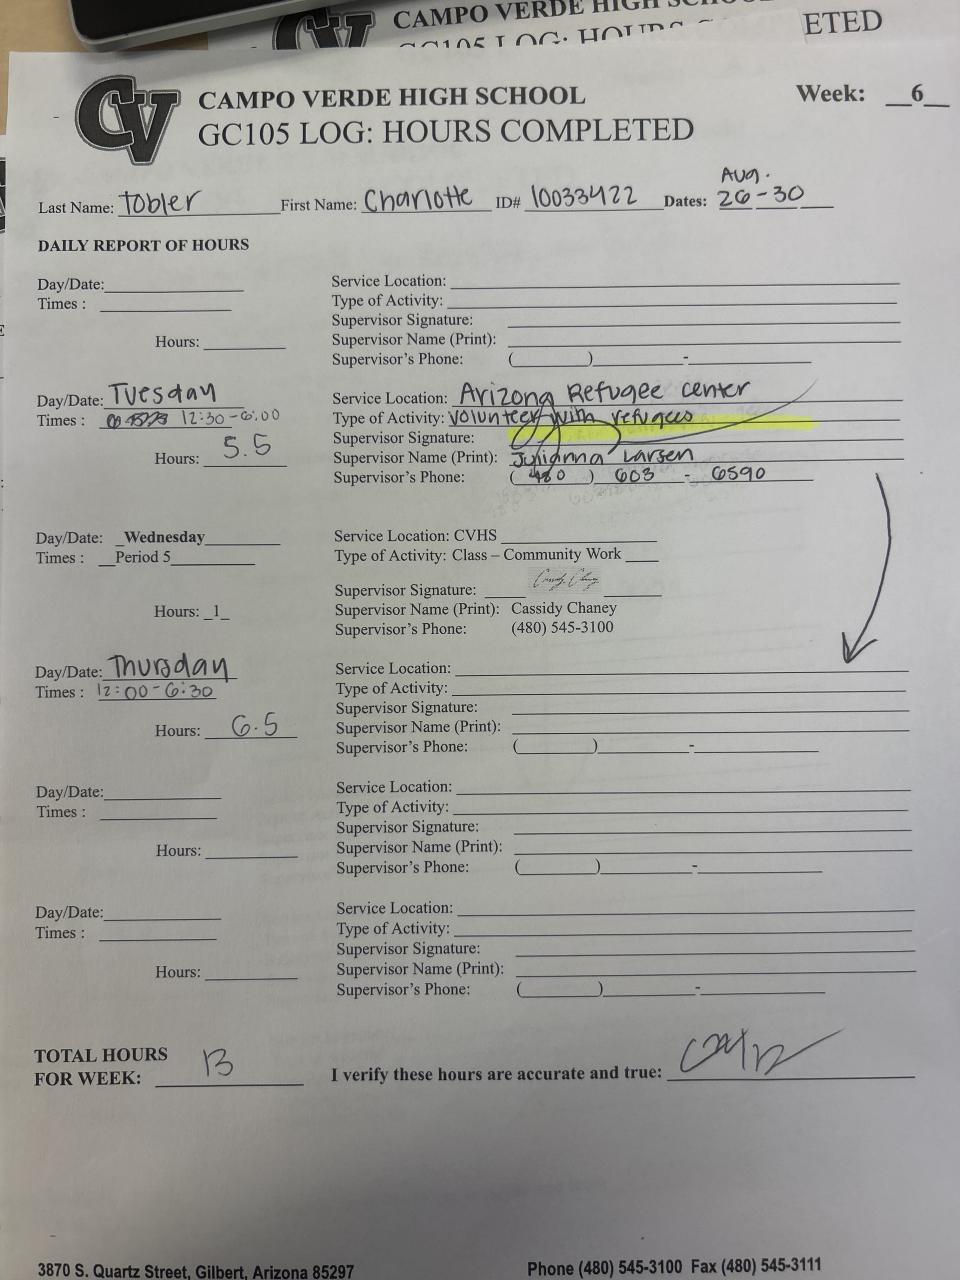 CAMPO VERDE HIGH SCHOOL
GC105 LOG: HOURS
ETED
CV
CAMPO VERDE HIGH SCHOOL
Week: __6__
GC105 LOG: HOURS COMPLETED
Last Name: Tobler First Name: Charlotte ID# 10033422 Dates: Aug. 26-30
DAILY REPORT OF HOURS
Day/Date:
Service Location:
Times :
Type of Activity:
Supervisor Signature:
Hours:
Supervisor Name (Print):
Supervisor's Phone: ( ) -
Day/Date: Tuesday
Service Location: Arizona Refugee center
Times : 12:30-6:00
Type of Activity: Volunteer with refugees
Supervisor Signature:
Hours: 5.5
Supervisor Name (Print): Julianna Larsen
Supervisor's Phone: (480) 603 - 6590
Day/Date: _Wednesday
Service Location: CVHS
Times : __Period 5
Type of Activity: Class – Community Work
Supervisor Signature:
Hours: _1_
Supervisor Name (Print): Cassidy Chaney
Supervisor's Phone: (480) 545-3100
Day/Date: Thursday
Service Location:
Times : 12:00-6:30
Type of Activity:
Supervisor Signature:
Hours: 6.5
Supervisor Name (Print):
Supervisor's Phone: ( ) -
Day/Date:
Service Location:
Times :
Type of Activity:
Supervisor Signature:
Hours:
Supervisor Name (Print):
Supervisor's Phone: ( ) -
Day/Date:
Service Location:
Times :
Type of Activity:
Supervisor Signature:
Hours:
Supervisor Name (Print):
Supervisor's Phone: ( ) -
TOTAL HOURS
FOR WEEK: 13
I verify these hours are accurate and true:
3870 S. Quartz Street, Gilbert, Arizona 85297
Phone (480) 545-3100 Fax (480) 545-3111